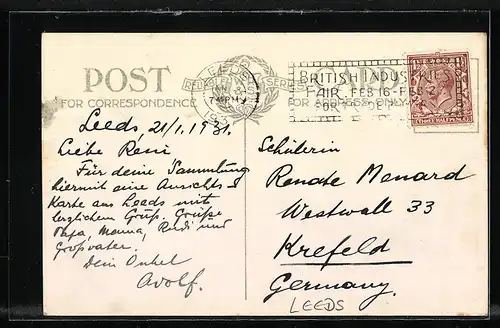 POST CARD
FOR CORRESPONDENCE
FOR ADDRESS ONLY
LEEDS
BRITISH INDUSTRIES
FAIR FEB 16-FEB 2
Leeds, 21/1.1931.
Liebe Reni
Für deine Sammlung
hiermit eine Ansichts-
karte aus Leeds mit
herzlichem Gruß. Grüße
Papa, Mama, Rudi und
Großvater.
Dein Onkel
Adolf.
Schülerin
Renate Menard
Westwall 33
Krefeld
Germany.
LEEDS